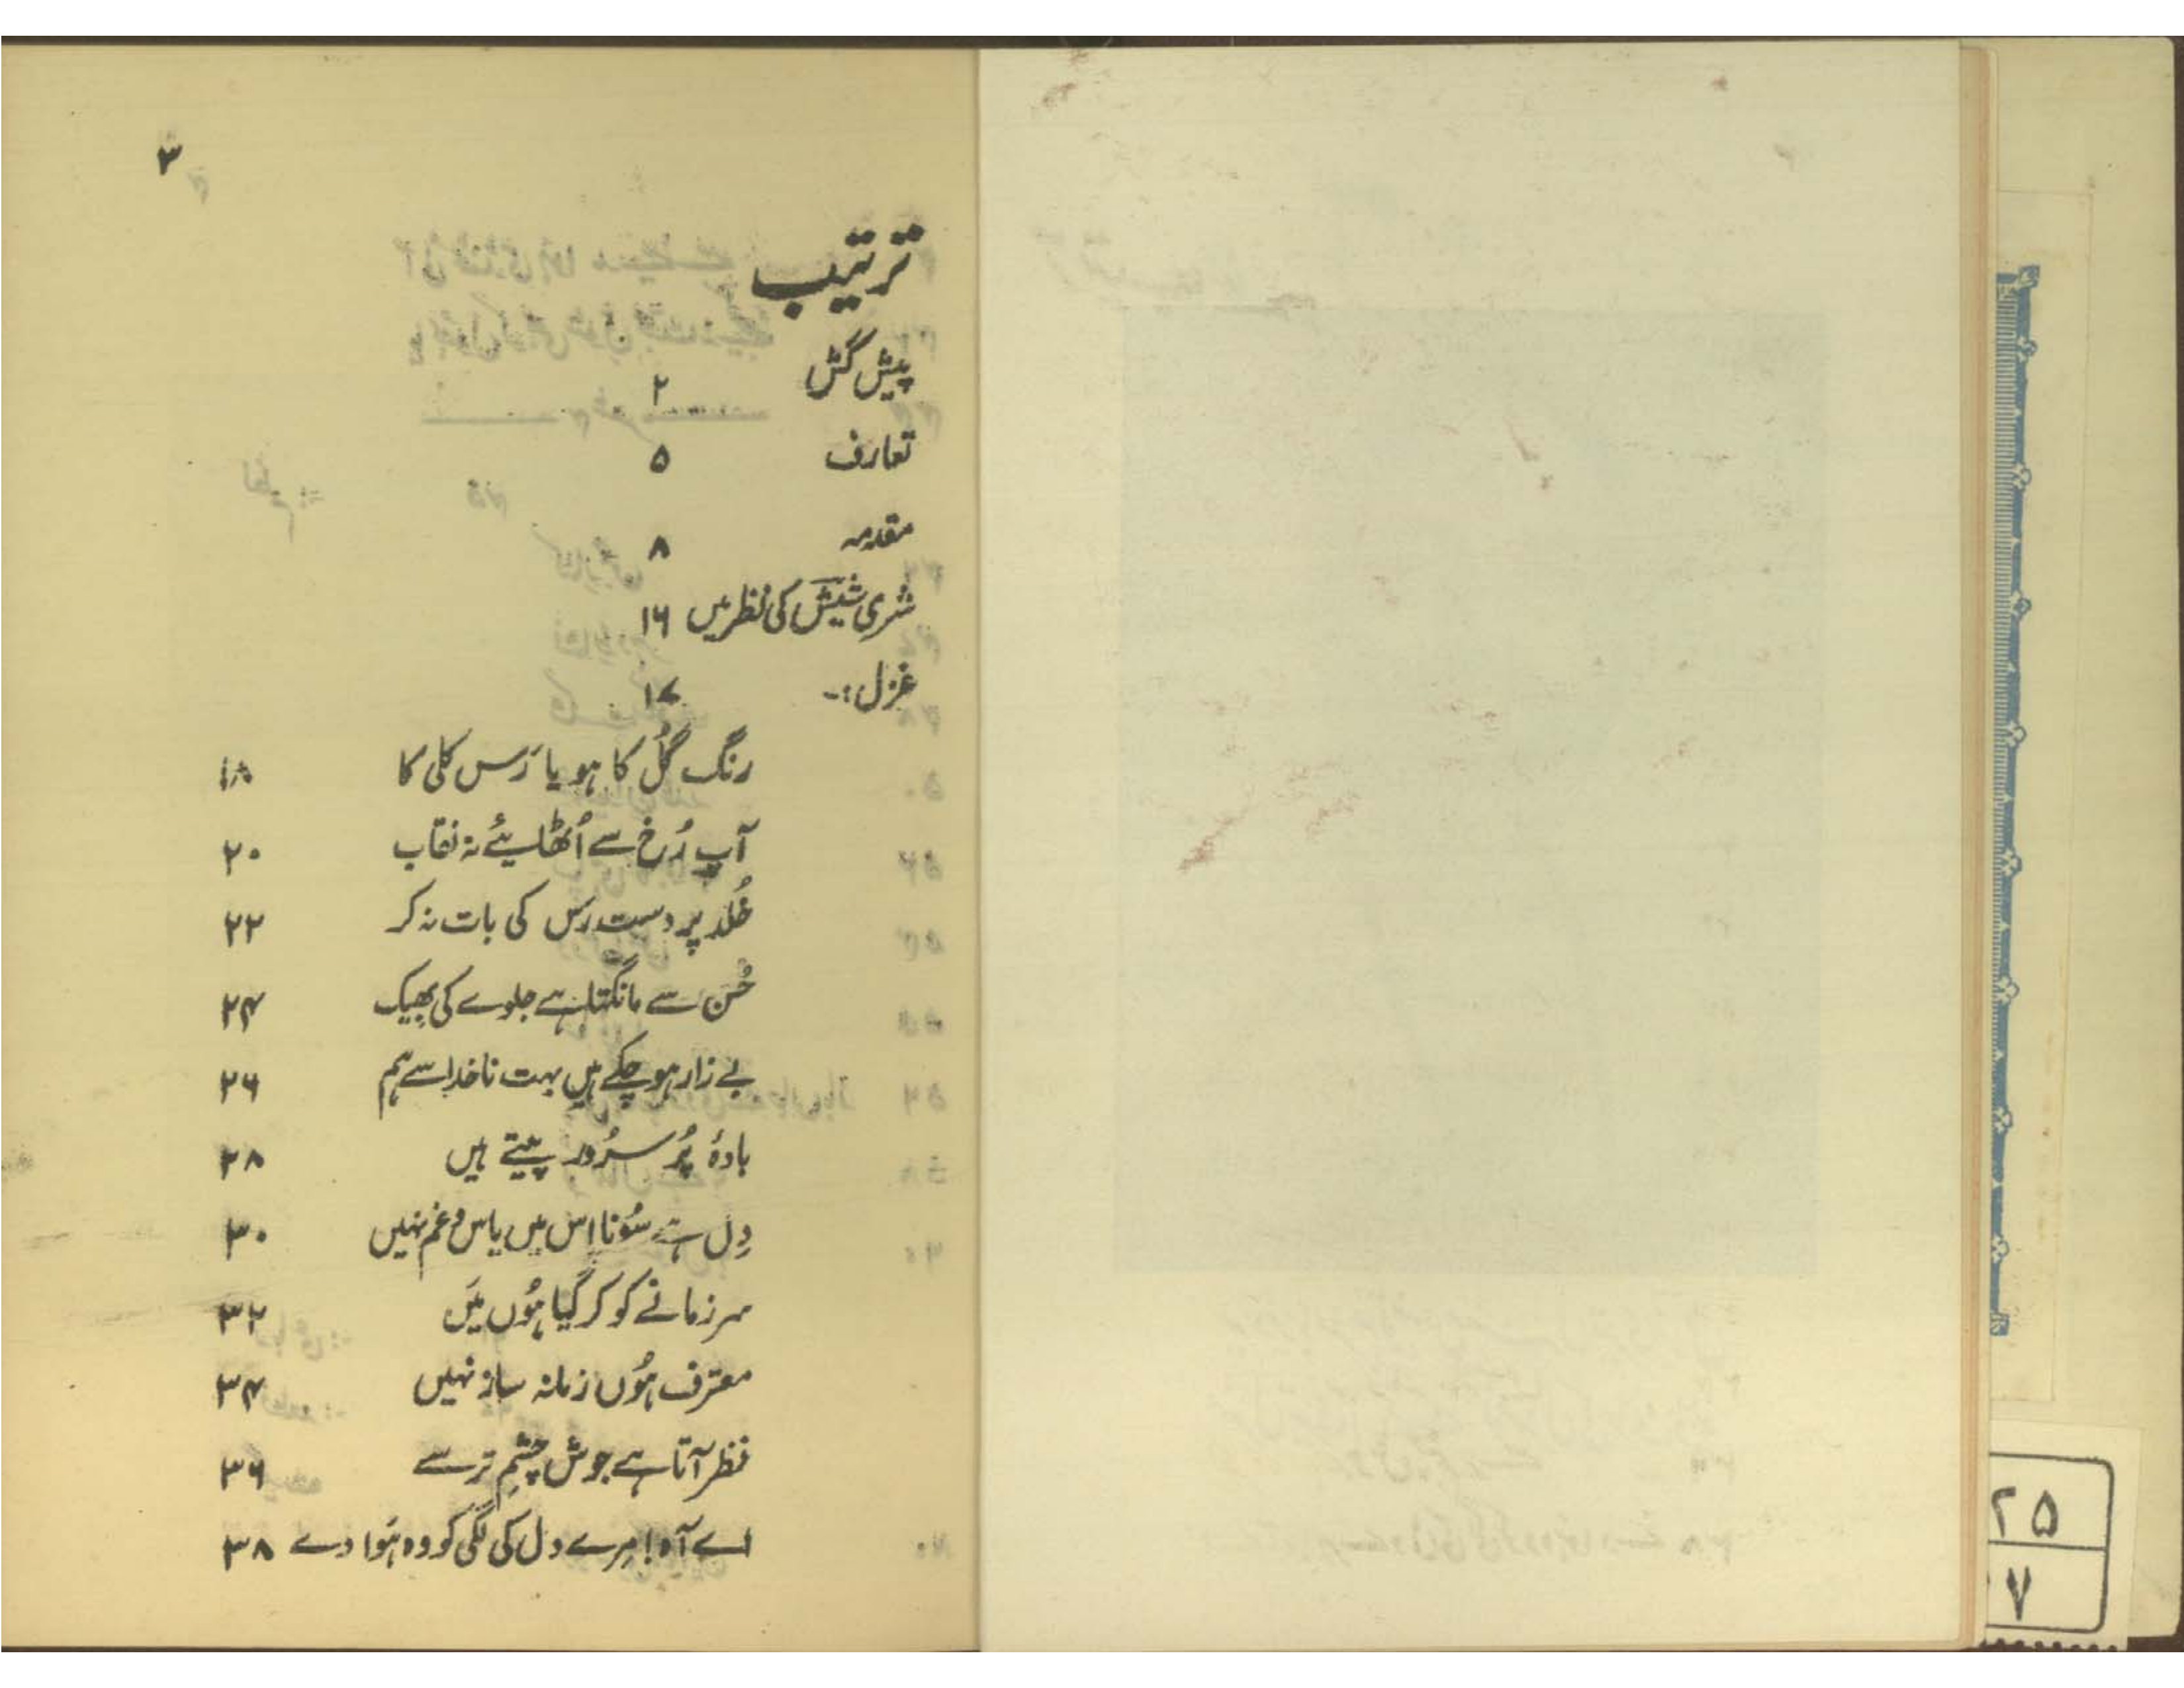 ۳
ترتیب
پیش کش ۲
تعارف ۵
مقدمہ ۸
شری شیش کی نظر میں ۱۶
غزل :- ۱۷
رنگ گُل کا ہو یا رَس کلی کا ۱۸
آپ رُخ سے اُٹھایئے نہ نقاب ۲۰
خُلد پر دسترس کی بات نہ کر ۲۲
حُسن سے مانگتا ہے جلوے کی بھیک ۲۴
بے زار ہو چکے ہیں بہت ناخدا سے ہم ۲۶
بادۂ پُر سرُور پیتے ہیں ۲۸
دِل ہے سُونا اِس میں یاس و غم نہیں ۳۰
سر زمانے کو کر گیا ہُوں میَں ۳۲
معترف ہُوں زمانہ ساز نہیں ۳۴
نظر آتا ہے جوشِ چشمِ تر سے ۳۶
اے آہ! مِرے دل کی لگی کو وہ ہَوا دے ۳۸
۲۵
۷